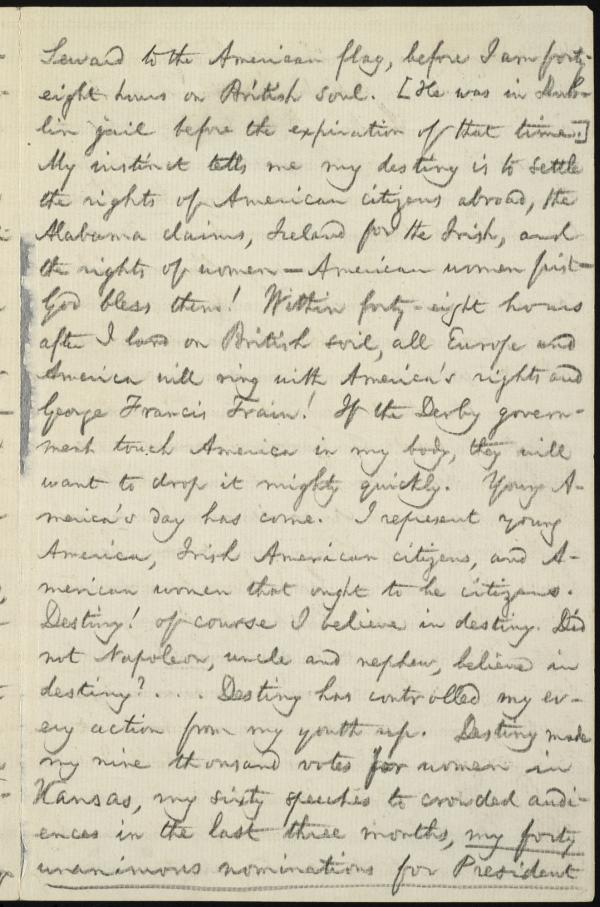 Seward to the American flag, before I am forty-
eight hours on British soul. [He was in Dub-
lin jail before the expiration of that time.]
My instinct tells me my destiny is to settle
the rights of American citizens abroad, the
Alabama claims, Ireland for the Irish, and
the rights of women — American women first —
God bless them! Within forty-eight hours
after I land on British soil, all Europe and
America will ring with America's rights and
George Francis Train! If the Derby govern-
ment touch America in my body, they will
want to drop it mighty quickly. Young A-
merica's day has come. I represent young
America, Irish American citizens, and A-
merican women that ought to be citizens.
Destiny! of course I believe in destiny. Did
not Napoleon, uncle and nephew, believe in
destiny? . . . Destiny has controlled my ev-
ery action from my youth up. Destiny made
my nine thousand votes for women in
Kansas, my sixty speeches to crowded audi-
ences in the last three months, my forty
unanimous nominations for President